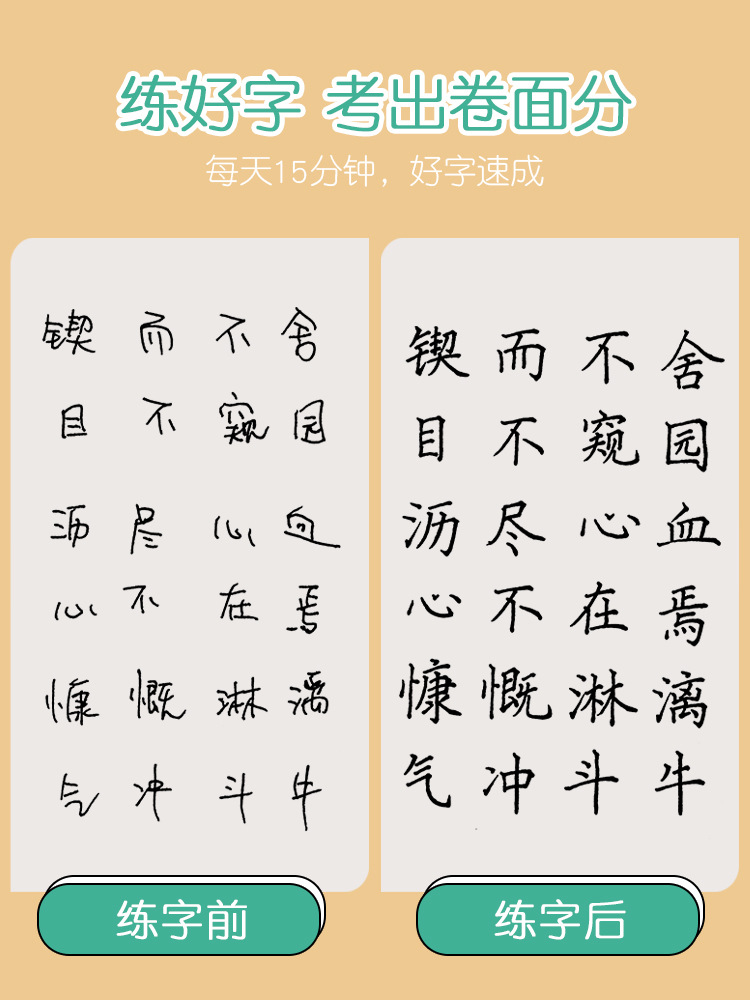 练好字 考出卷面分
每天15分钟，好字速成
锲而不舍
目不窥园
沥尽心血
心不在焉
慷慨淋漓
气冲斗牛
练字前
锲而不舍
目不窥园
沥尽心血
心不在焉
慷慨淋漓
气冲斗牛
练字后